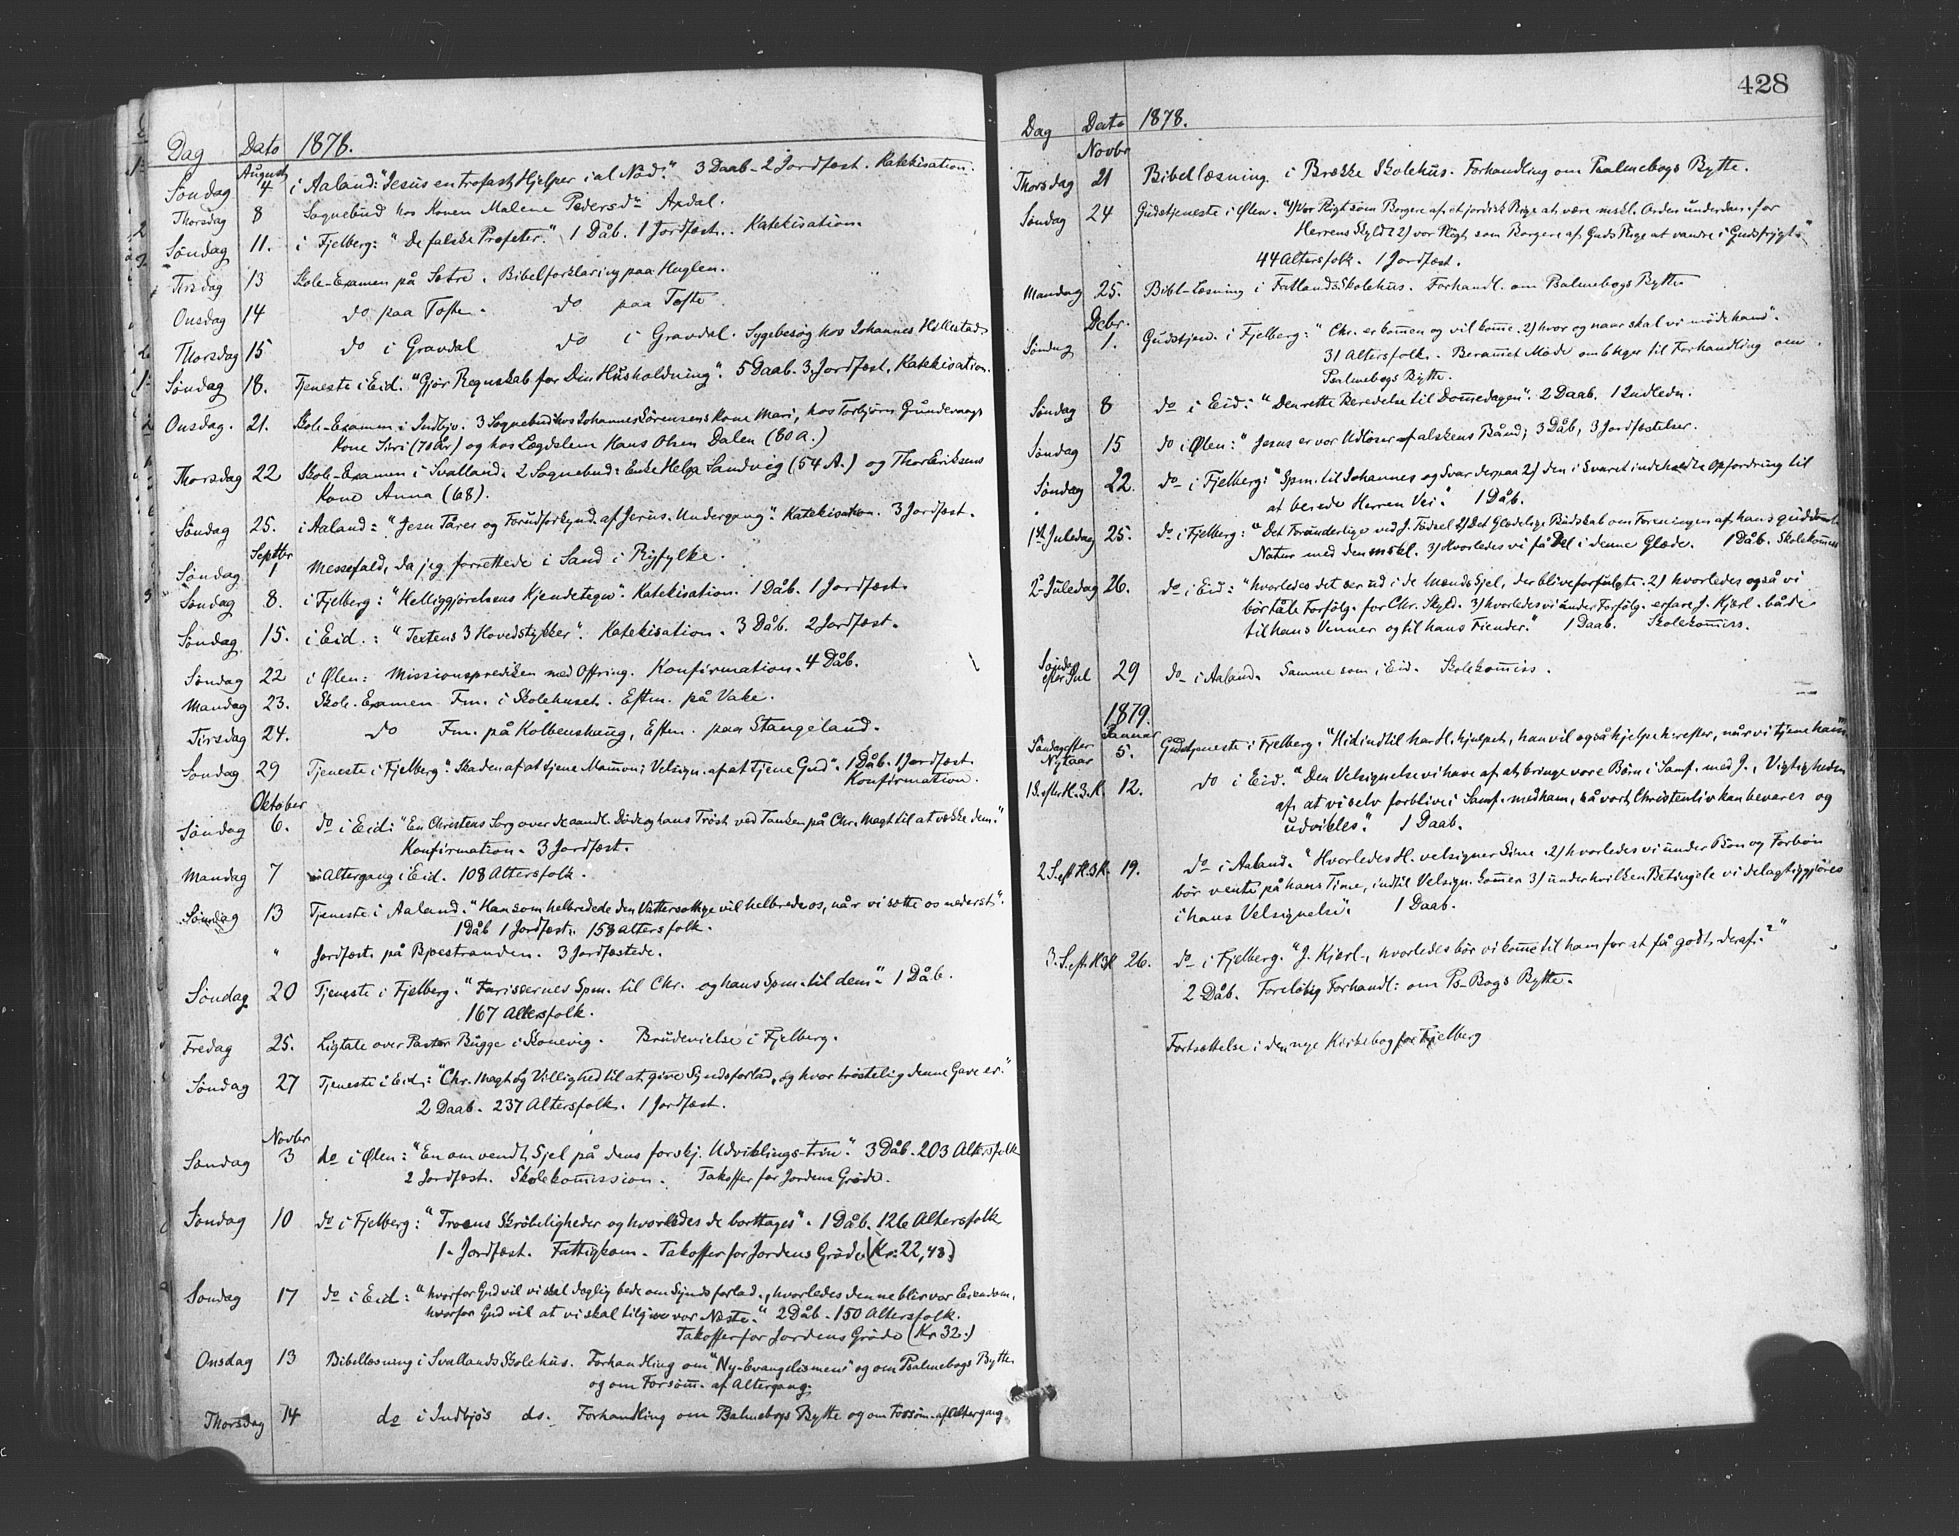 Dag Dato 1878.
August
Søndag 4 i Aaland: "Jesus en trofast Hjelper i al Nød." 3 Daab - 2 Jordfæst. Katekisation.
Thorsdag 8 Sognebud hos Konen Malene Pedersdn Axdal.
Søndag 11. i Fjelberg: "De falske Profeter." 1 Dåb. 1 Jordfæst. Katekisation.
Tirsdag 13 Skole-Examen på Sætre. Bibelforklaring paa Huglen.
Onsdag 14 do paa Tofte. do paa Tofte.
Thorsdag 15 do i Gravdal do i Gravdal. Sygebesøg hos Johannes Hellestad
Søndag 18. Tjeneste i Eid. "Gjør Regnskab for Din Husholdning". 5 Daab. 3 Jordfæst, Katekisation.
Onsdag. 21. Skole-Examen i Indbjo. 3 Sognebud: hos Johannes Sørensens Kone Mari, hos Torbjørn
Kone Siri (70 år) og hos Lægdslem Hans Olsen Dalen (80 A.)
Thorsdag 22 Skole-Examen i Svalland. 2 Sognebud: Enke Helga Sandvig (54 A.) og Thor Eriksens
Kone Anna (68).
Søndag 25. i Aaland: "Jesu Tårer og Forudforkynd. af Jerus. Undergang". Katekisation. 3 Jordfæst.
Septbr
Søndag 1 Messefald, da jeg forrettede i Sand i Ryfylke.
Søndag 8. i Fjelberg: "Helliggjørelsens Kjendetegn". Katekisation. 1 Dåb. 1 Jordfæst.
Søndag 15. i Eid.: "Textens 3 Hovedstykker". Katekisation. 3 Dåb. 2 Jordfæst.
Søndag 22 i Ølen: Missionsprediken med Offring. Konfirmation. 4 Dåb.
Mandag 23. Skole-Examen Fm. i Skolehuset. Eftm. på Vake.
Tirsdag 24. do Fm. på Kolbenshaug, Eftm. paa Stangeland.
Søndag 29 Tjeneste i Fjelberg "Skaden af at tjene Mamon; Velsign. af at tjene Gud". 1 Dåb. 1 Jordfæst
Konfirmation.
Oktober
Søndag 6. do i Eid: "En Christens Sorg over de aandl. Døde og hans Trøst ved Tanken på Chr. Magt til at vække dem."
Konfirmation. 3 Jordfæst.
Mandag 7 Altergang i Eid. 108 Altersfolk.
Søndag 13 Tjeneste i Aaland. "Han som helbredede den Vattersottige vil helbrede os, når vi sætte os nederst".
1 Dåb 1 Jordfæst. 158 Altersfolk.
" Jordfæst. på Bjoestranden. 3 Jordfæstede.
Søndag 20 Tjeneste i Fjelberg. "Farisæernes Spm. til Chr. og hans Spm. til dem". 1 Dåb.
167 Altersfolk.
Fredag 25. Ligtale over Pastor Bugge i Skonevig. Brudevielse i Fjelberg.
Søndag 27 Tjeneste i Eid: "Chr. Magt og Villighed til at give Syndsforlad., og hvor trøstelig denne Gave er."
2 Daab. 237 Altersfolk. 1 Jordfæst.
Novbr
Søndag 3 do i Ølen: "En omvendt Sjel på dens forskj. Udviklings-trin". 3 Dåb. 203 Altersfolk
2 Jordfæst. Skolekomission. Takoffer for Jordens Grøde.
Søndag 10 do i Fjelberg: "Troens Skrøbeligheder og hvorledes de borttages". 1 Dåb. 126 Altersfolk
1. Jordfæst. Fattigkom. Takoffer for Jordens Grøde (Kr: 22,48)
Søndag 17 do i Eid: "hvorfor Gud vil vi skal daglig bede om Syndsforlad., hvorledes denne blir vor Eiendom,
hvorfor Gud vil at vi skal tilgive vor Næste." 2 Dåb. 150 Altersfolk.
Takoffer for Jordens Grøde (Kr 32.)
Onsdag 13 Bibellæsning i Svallands Skolehus. Forhandling om "Ny-Evangelismen" og om Psalmebogs Bytte
og om Forsøm. af Altergang.
Thorsdag 14 do i Indbjo's do. Forhandling om Psalmebogs Bytte og om Forsøm. af Altergang
428
Dag Dato 1878.
Novbr
Thorsdag 21 Bibellæsning i Brække Skolehus. Forhandling om Psalmebogs Bytte.
Søndag 24 Gudstjeneste i Ølen. "1) Vor Pligt som Borgere af et jordisk Rige at være mskl. Orden underdan. for
Herrens Skyld 2) vor Pligt som Borgere af Guds Rige at vandre i Gudsfrygt."
44 Altersfolk. 1 Jordfæst.
Mandag 25. Bibl-Læsning i Fatlands Skolehus. Forhandl. om Psalmebogs Bytte
Debr.
Søndag 1. Gudstjen. i Fjelberg: "Chr. er kommen og vil komme. 2) hvor og naar skal vi møde ham".
31 Altersfolk. Berammet Møde om 6 Uger til Forhandling om
Psalmebogs Bytte.
Søndag 8 do i Eid: "Den rette Beredelse til Dommedagen". 2 Daab. 1 Indledn.
Søndag 15 do i Ølen: "Jesus er vor Udløser af alskens Bånd; 3 Dåb, 3 Jordfæstelser.
Søndag 22. do i Fjelberg: "Spm. til Johannes og Svar derpaa 2) den i Svaret indeholdte Opfordring til
at berede Herren Vei." 1 Dåb.
1st Juledag 25. do i Fjelberg: "Det Forunderlige ved J. Fødsel 2) Det Glædelige Budskab om Foreningen af hans guddomle
Natur med den mskl. 3) Hvorledes vi få Del i denne Glæde. 1 Dåb. Skolekommiss
2. Juledag 26. do i Eid: "hvorledes det ser ud i de Mænds Sjel, der blive forfulgte. 2) hvorledes også vi
bør tåle Forfølg. for Chr. Skyld. 3) hvorledes vi under Forfølg. erfare J. Kjærl. både
til hans Venner og til hans Fiender." 1 Daab. Skolekomiss.
Sønd. efter Jul 29 do i Aaland. Samme som i Eid. Skolekomiss.
1879.
Januar
Søndag efter Nytaar 5. Gudstjeneste i Fjelberg. "Hidindtil har H. hjulpet, han vil også hjelpe herefter, når vi tjene ham"
1 S. efter H. 3. K. 12. do i Eid. "Den Velsignelse vi have af at bringe vore Børn i Samf. med J., Vigtigheden
af at vi selv forblive i Samf. med ham, så vort Christenliv kan bevares og
udvikles." 1 Daab.
2 S. eft H. 3 K. 19. do i Aaland. "Hvorledes H. velsigner Sine. 2) hvorledes vi under Bøn og Forbøn
bør vente på hans Time, indtil Velsign. kommer 3) under hvilken Betingelse vi delagtiggjøres
i hans Velsignelse". 1 Daab.
3. S. eft. H 3 K 26. do i Fjelberg. "J. Kjærl., hvorledes bør vi komme til ham for at få godt deraf?"
2 Dåb. Foreløbig Forhandl: om Ps-Bogs Bytte.
Fortsættelse i den nye Kirkebog for Fjelberg